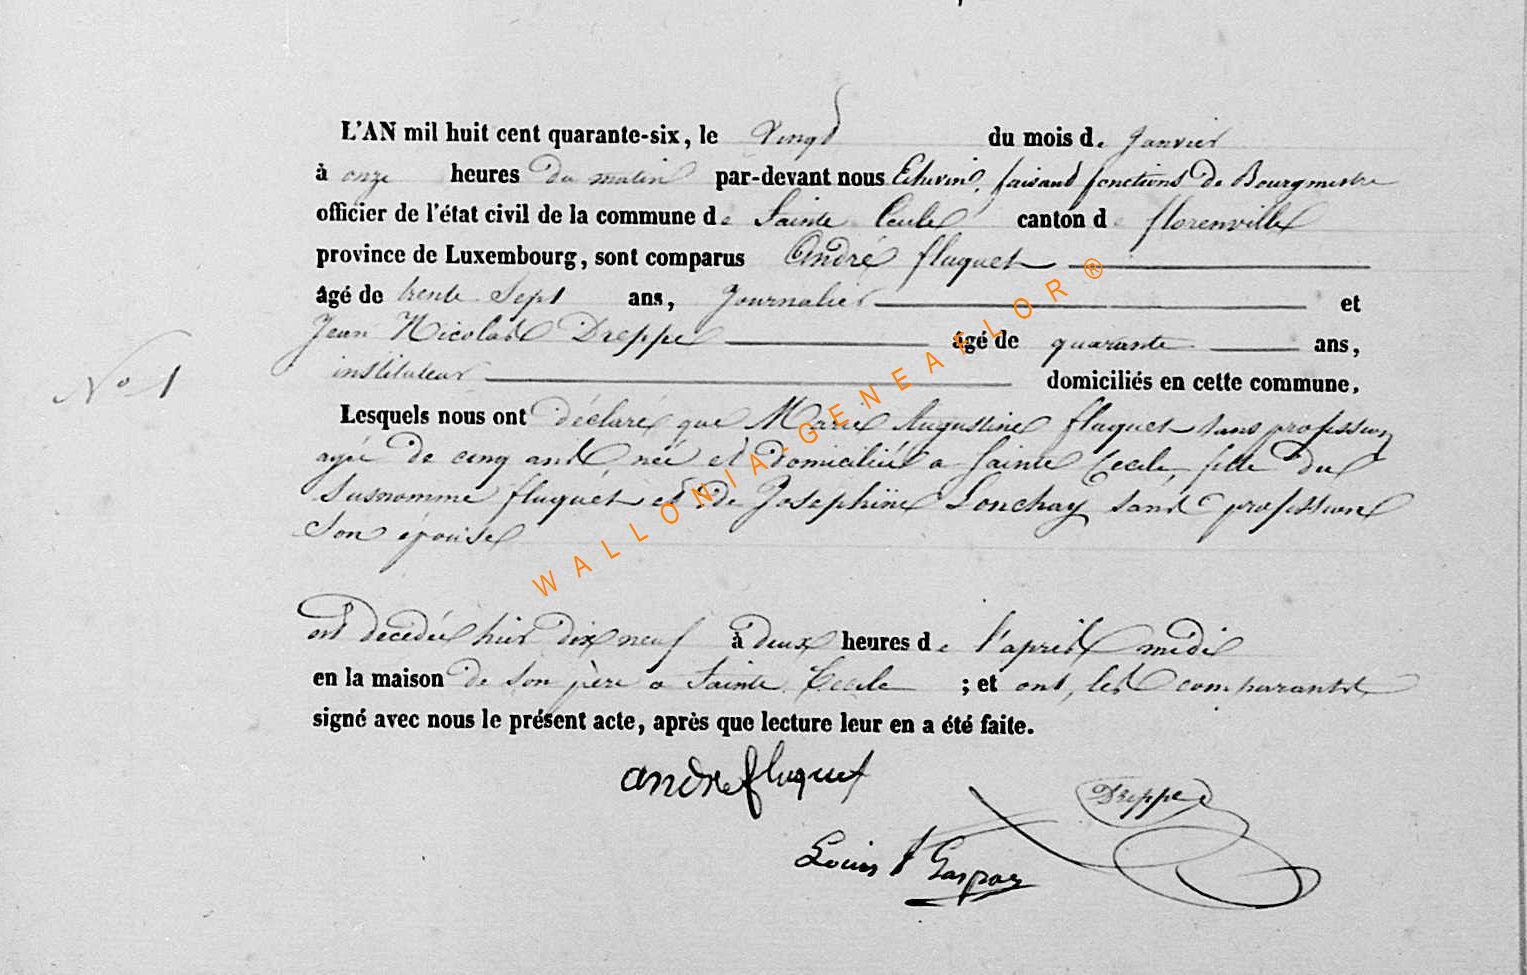 L'AN mil huit cent quarante-six, le Vingt du mois de Janvier
à onze heures du matin par-devant nous Echevin, faisant fonctions de Bourgmestre
officier de l'état civil de la commune de Sainte Cecile canton de florenville
province de Luxembourg, sont comparus André fluquet
âgé de trente Sept ans, Journalier et
Jean Nicolas Dreppe âgé de quarante ans,
instituteur domiciliés en cette commune.
No 1
Lesquels nous ont déclaré que Marie Augustine fluquet sans profession
agée de cinq ans, née et domiciliée a Sainte Cecile, fille du
Susnommé fluquet et de Josephine Lonchay sans profession
Son épouse
est décédée hier dix neuf à deux heures de l'après midi
en la maison de Son père a Sainte Cecile ; et ont, les comparants
signé avec nous le présent acte, après que lecture leur en a été faite.
andre fluquet
Dreppe
Louis Gaspar
WALLONIA-GENEAFLOR®